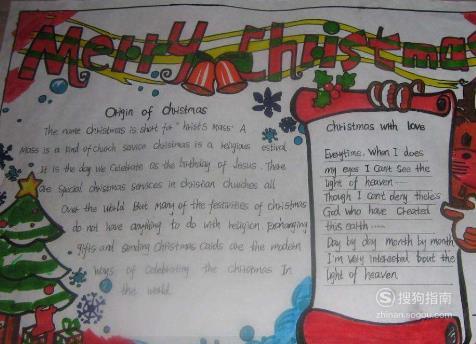 Merry Christmas
Origin of christmas
The name Christmas is short for "hrist's Mass". A
Mass is a kind of church service christmas is a religious estival
It is the day we celebrate as the birthday of Jesus. There
are special christmas services in christian churches all
Over the world But many of the festivities of christmas
do not have anything to do with religion. Exchanging
gifts and sending christmas cards are the modern
ways of celebrating the christmas In
the world.
christmas with love
Everytime. When I does
my eyes I Can't See the
light of heaven
Though I can't deny there's
God who have created
this earth ......
Day by day month by month
I'm very interested bout the
light of heaven.
搜狗指南
zhinan.sogou.com